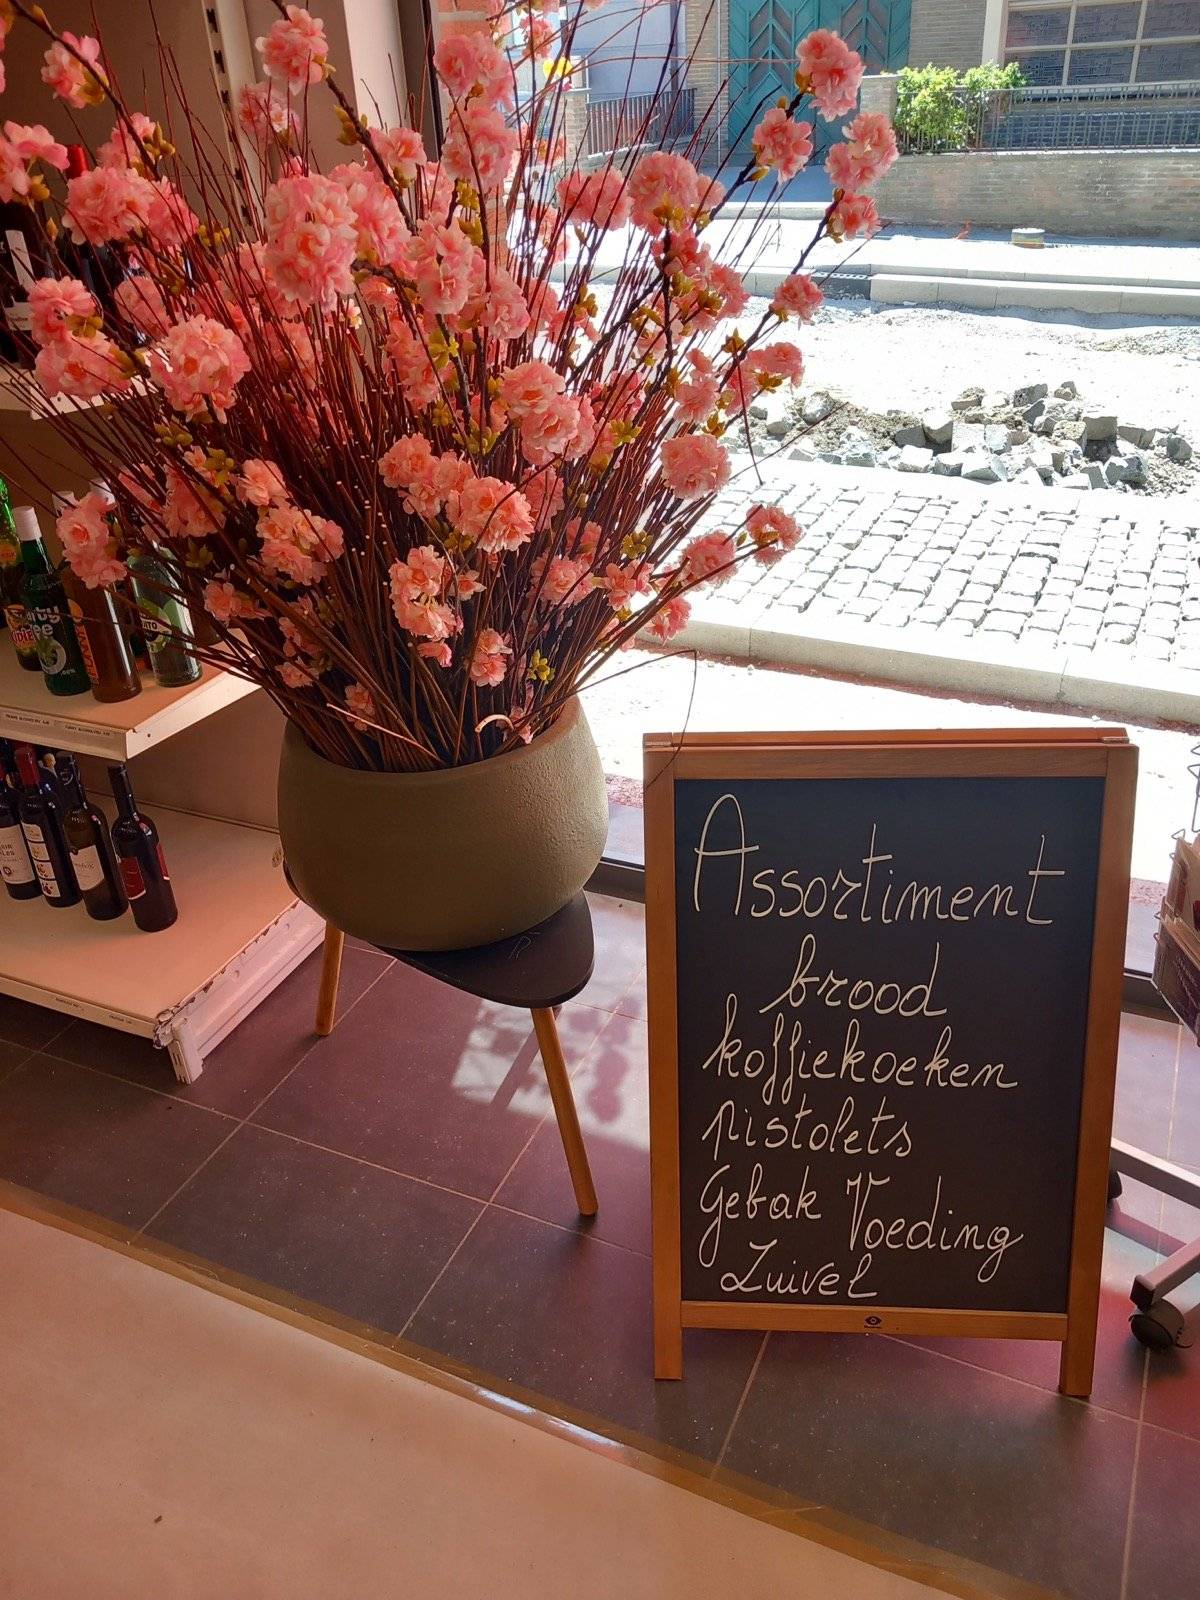 Assortiment
brood
koffiekoeken
pistolets
Gebak Voeding
Zuivel